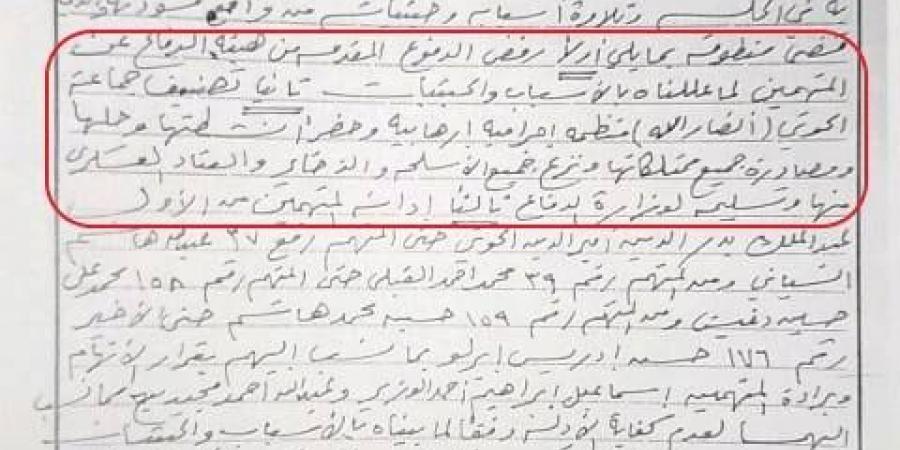 به في الجلسة وتلاوة أسبابه وحيثيات
فقضى منطوقه بما يلي أولاً رفض الدفوع المقدمه من هيئه الدفاع عن
المتهمين لما عللناه بالأسباب والحيثيات ثانياً تصنيف جماعة
الحوثي (أنصار الله) منظمه إجراميه إرهابيه وحضر أنشطتها وحلها
ومصادرة جميع ممتلكاتها ونزع جميع الأسلحه والذخاير والعتاد العسكري
منها وتسليمه لوزارة الدفاع ثالثاً إدانة المتهمين من الأول
عبدالملك بدر الدين أمير الدين الحوثي حتى المتهم رقم ٣٧ عبدالله هاشم
السياني ومن المتهم رقم ٣٩ محمد احمد القبلي حتى المتهم رقم ١٥٨ محمد علي
حسين دغيش ومن المتهم رقم ١٥٩ حسين محمد هاشم حتى الأخير
رقم ١٧٦ حسن إدريس إيرلو بما نسب إليهم بقرار الاتهام
وبراءة المتهمين إسماعيل إبراهيم أحمد الوزير وعبدالله أحمد مجيديع مما نسب
إليهما لعدم كفاية الأدلة وفقاً لما بيناه بالأسباب والحيثيات